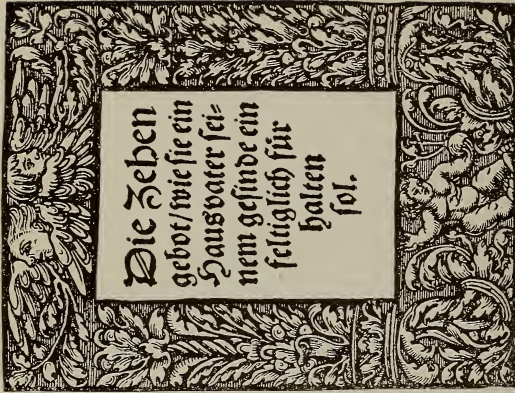 Die Zehen
gebot/ wie sie ein
Hausvater sei⸗
nem gesinde ein
feltiglich für
halten
sol.